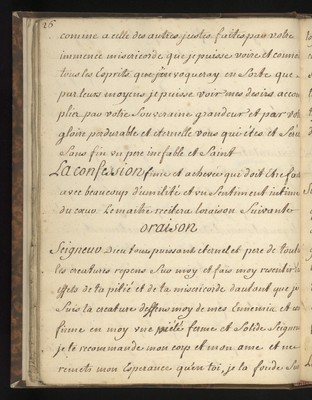 26
comme a celle des autres justes faites par votre
immence misericorde que je puisse voire et connoi
tous les Esprits que j'invoqueray en Sorte que
par leurs moyens je puisse voir mes desirs accom
plir par votre Souveraine grandeur et par votre
gloire perdurable et eternelle vous qui êtes et Serez
Sans fin un pere inefable et Saint
La confession finie et achevée qui doit être faite
avec beaucoup d'humilité et un Sentiment intime
du cœur Le maitre recitera loraison Suivante
oraison
Seigneur Dieu tous puissant eternel et pere de toutes
les creaturs repens Sur moy et fais moy resentir les
effets de ta pitié et de ta misericorde d'autant que je
Suis ta creature deffens moy de mes Ennemis et
firme en moy une pieté ferme et Solide Seigneur
je te recommande mon corp et mon ame et ne
remets mon Esperance qu'en toi, je la fonde Sur